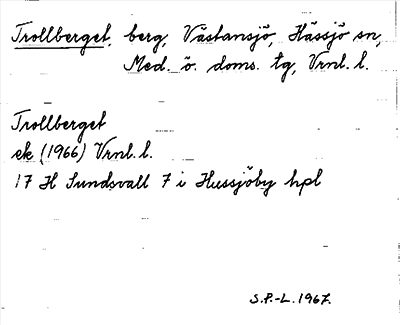 Trollberget, berg, Västansjö, Hässjö sn,
Med. ö. doms. tg, Vrnl. l.
Trollberget
ek (1966) Vrnl. l.
17 H Sundsvall 7 i Hussjöby hpl
S.P.-L. 1967.